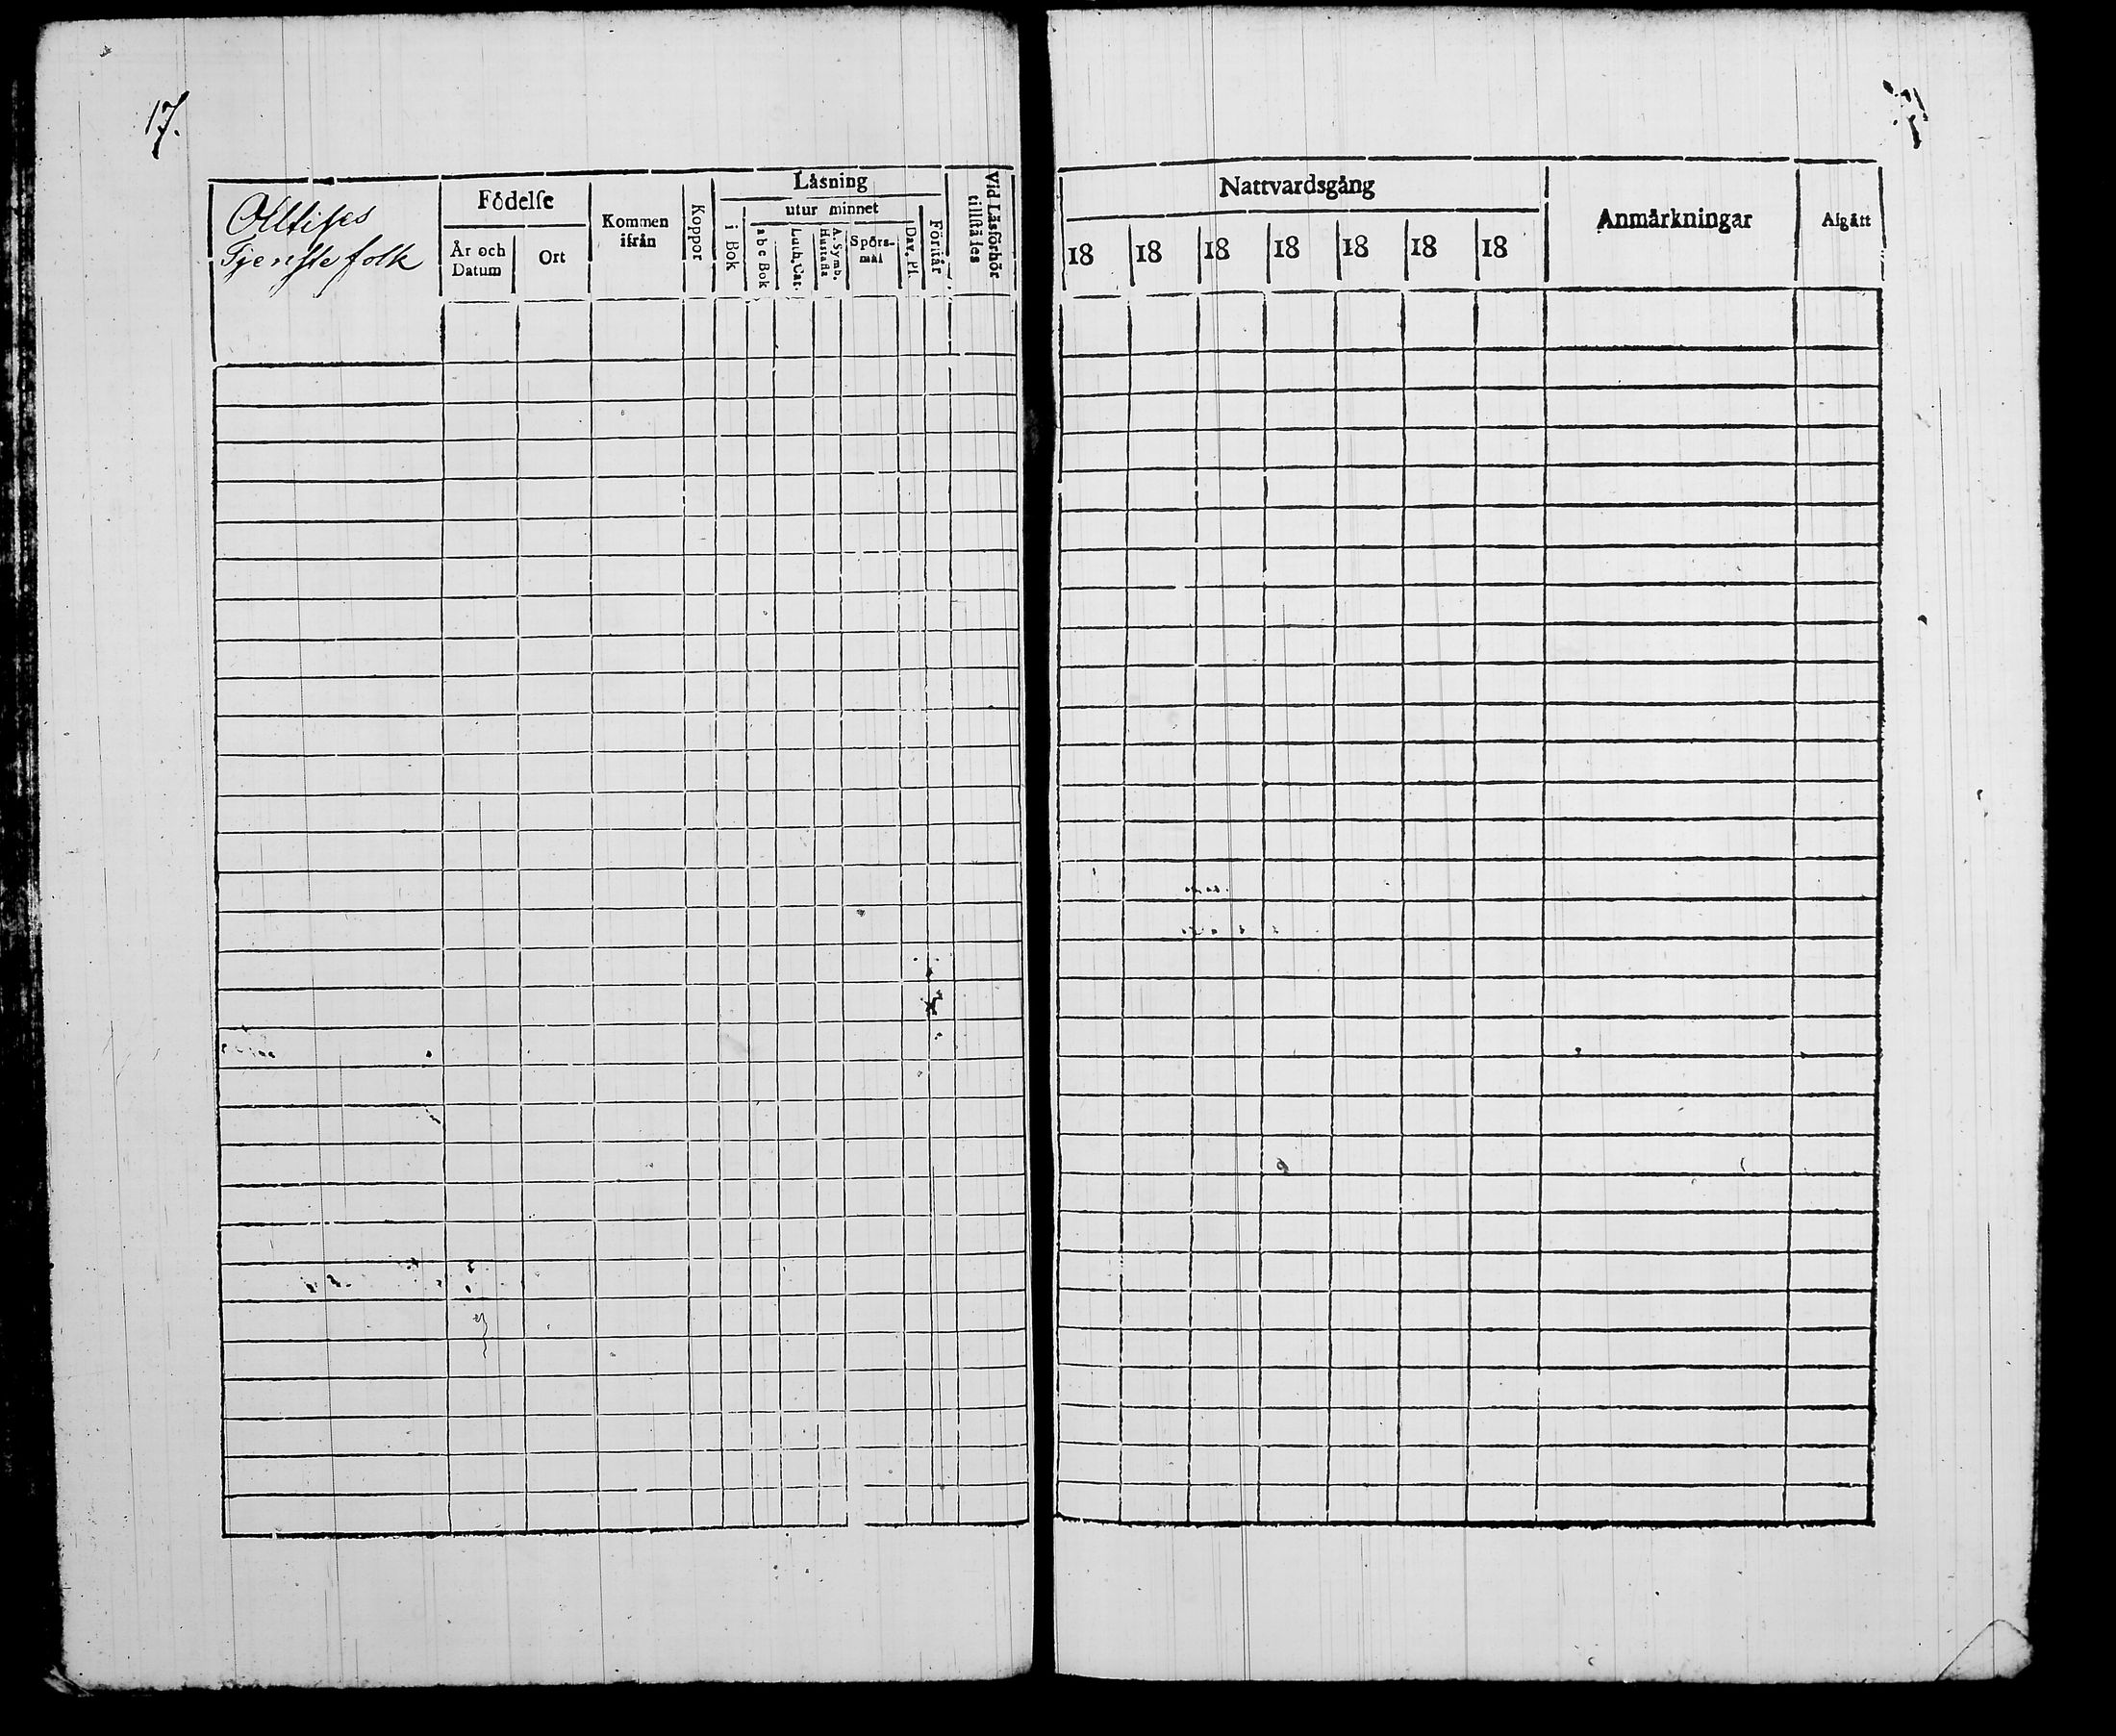 17.
Tjenstefolk
Födelse
År och Datum
Ort
Kommen ifrån
Koppor
Läsning
i Bok
utur minnet
abc Bok
Luth. Cat.
A. Symb. Hustafla
Spörs-mål
Dav. Ps.
Förstår
Vid Läsförhör tillstädes
Nattvardsgång
18 18 18 18 18 18 18
Anmärkningar
Afgått